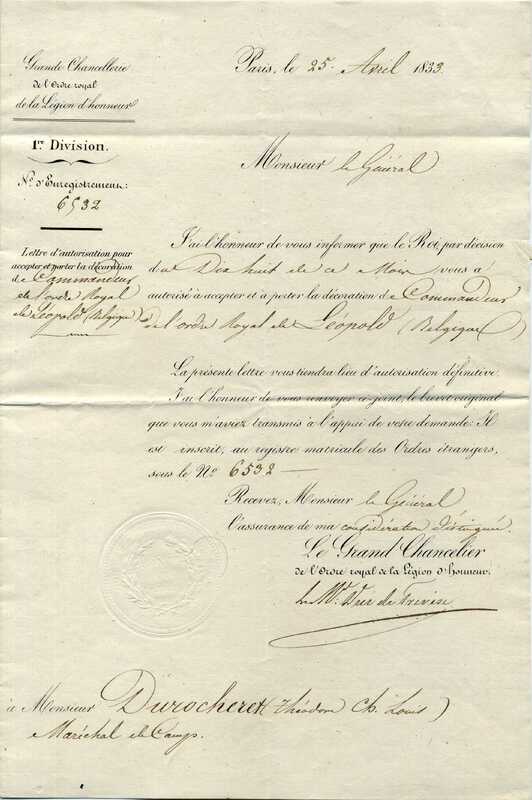 Grande Chancellerie
de l'Ordre royal
de la Légion d'honneur
1re Division.
No. d'Enregistrement:
6532
Lettre d'autorisation pour
accepter et porter la décoration
de Commandeur
de l'ordre Royal
de Léopold (Belgique)
Paris, le 25 Avril 1833.
Monsieur le Général
J'ai l'honneur de vous informer que le Roi, par décision
du Dix huit de ce Mois vous a
autorisé à accepter et à porter la décoration de Commandeur
de l'ordre Royal de Léopold (Belgique)
La présente lettre vous tiendra lieu d'autorisation définitive.
J'ai l'honneur de vous renvoyer ci-joint, le brevet original
que vous m'aviez transmis à l'appui de votre demande: Il
est inscrit, au registre matricule des Ordres étrangers,
sous le No 6532 —
Recevez, Monsieur le Général
l'assurance de ma considération distinguée.
Le Grand Chancelier
de l'Ordre royal de la Légion d'honneur.
le Mal Duc de Trévise
à Monsieur Durocheret (Théodore Ch. Louis)
Maréchal de Camp.